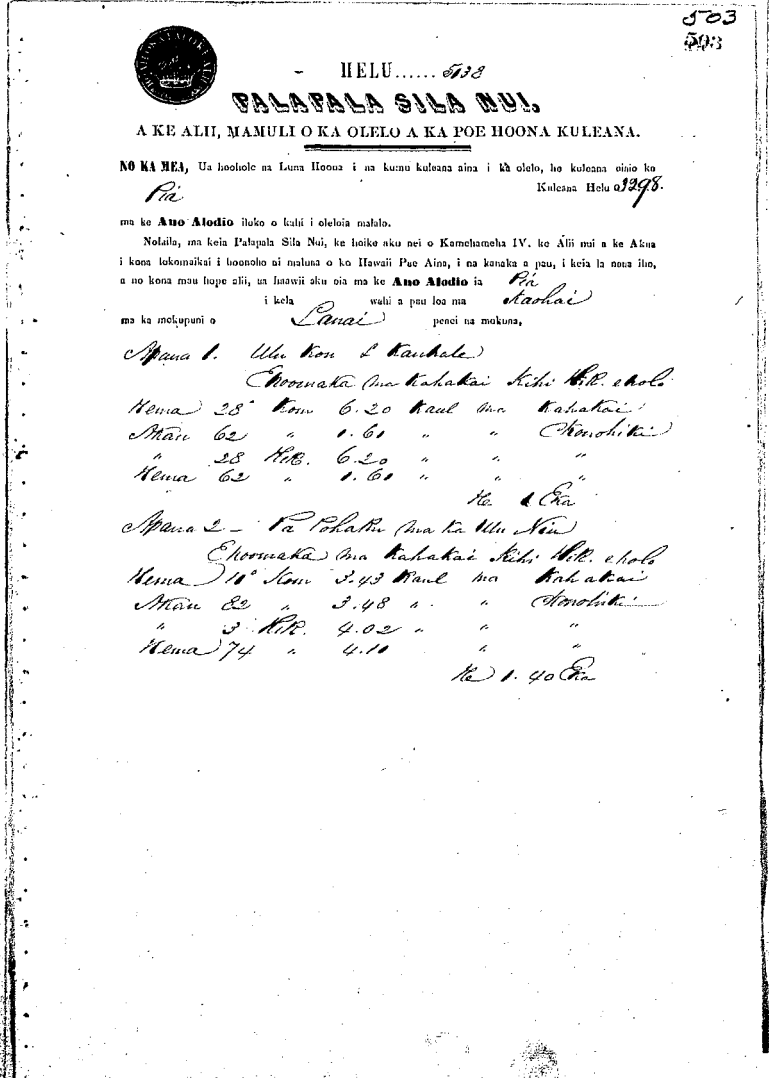 503
503
HELU...... 5138
PALAPALA SILA NUI,
A KE ALII, MAMULI O KA OLELO A KA POE HOONA KULEANA.
NO KA MEA, Ua hoohole na Luna Hoona i na kumu kuleana aina i ka olelo, he kuleana oiaio ko
Pia Kuleana Helu
ma ke Ano Alodio iloko o kahi i oleloia malalo.
Nolaila, ma keia Palapala Sila Nui, ke hoike aku nei o Kamehameha IV. ke Alii nui a ke Akua
i kona lokomaikai i hoonoho ai maluna o ko Hawaii Pae Aina, i na kanaka a pau, i keia la nona iho,
a no kona mau hope alii, ua haawii aku oia ma ke Ano Alodio ia Pia
i kela wahi a pau loa ma Kaohai
ma ka mokupuni o Lanai penei na mokuna,
Apana 1. Ulu Kou & Kauhale
Ehoomaka ma Kahakai Kihi Hik. eholo
Hema 28° Kom 6.20 Kaul ma Kahakai
Akau 62 " 1.61 " " Konohiki
" 28 Hik. 6.20 " " "
Hema 62 " 1.61 " " "
He 1 Eka
Apana 2 - Pa Pohaku ma ka Ulu Niu
Ehoomaka ma Kahakai Kihi Hik. eholo
Hema 10° Kom 3.43 Kaul ma Kahakai
Akau 82 " 3.48 " " Konohiki
" 3 Hik. 4.02 " " "
Hema 74 " 4.10 " "
He 1.40 Eka